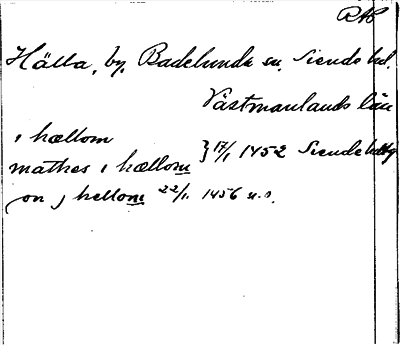 RAP
Hälla, by, Badelunda sn, Siende hd.
Västmanlands län
i hællom
mathes i hællom } 17/1 1452 Siende
on j hellom 22/1. 1456 u.s.